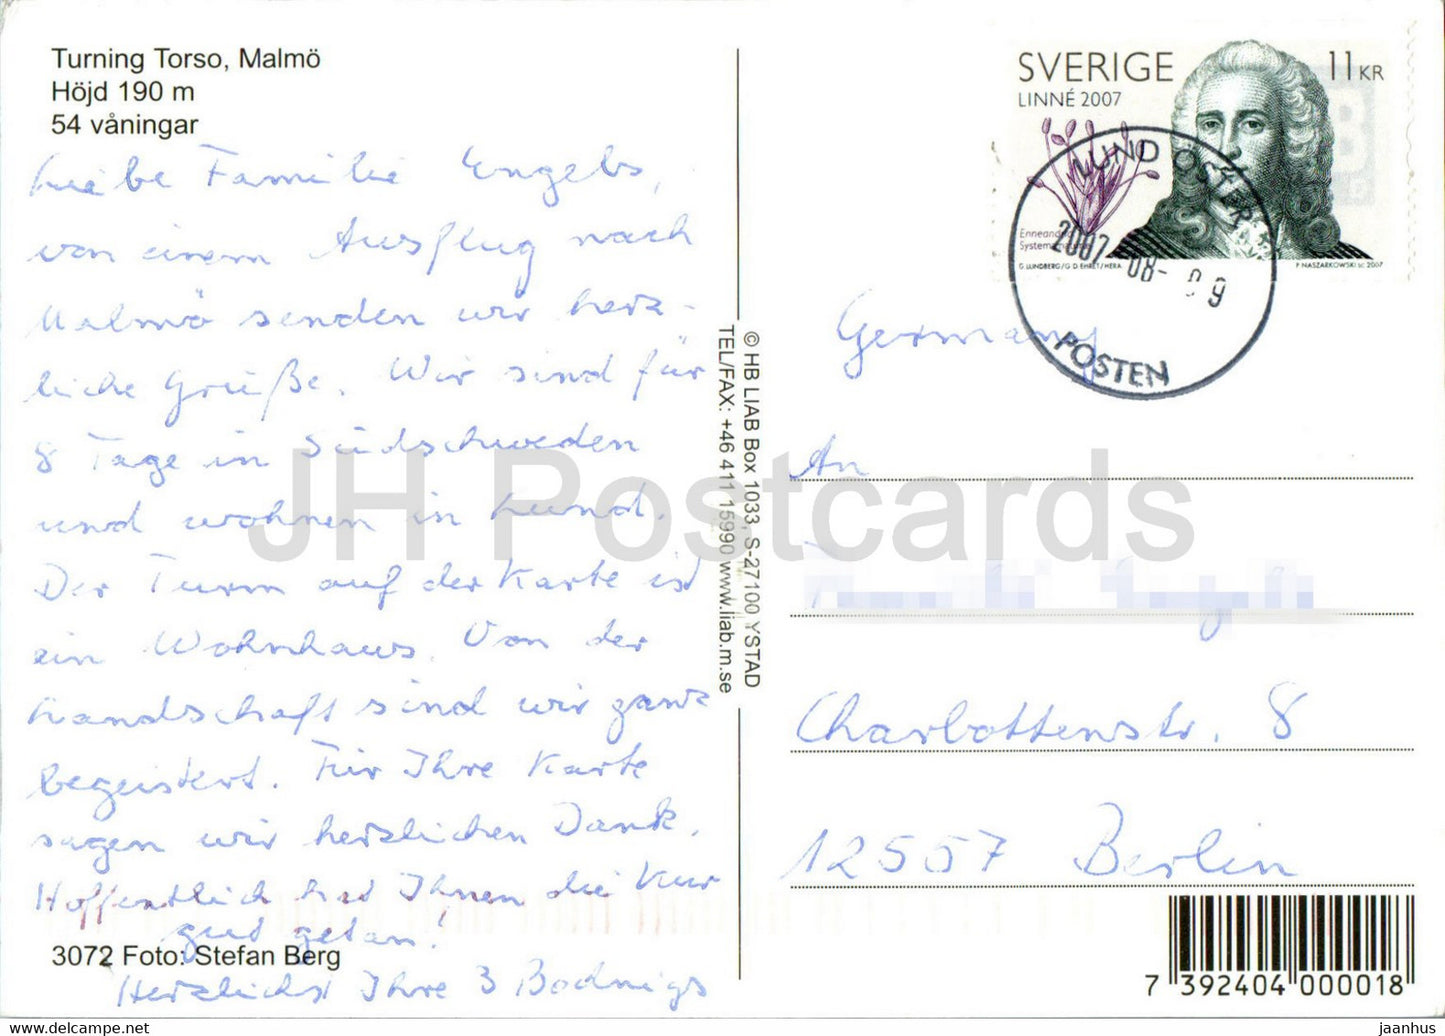 Turning Torso, Malmö
Höjd 190 m
54 våningar
Liebe Familie Engels,
von einem Ausflug nach
Malmö senden wir herz-
liche Grüße. Wir sind für
8 Tage in Südschweden
und wohnen in Lund.
Der Turm auf der Karte ist
ein Wohnhaus. Von der
Landschaft sind wir ganz
begeistert. Für Ihre Karte
sagen wir herzlichen Dank.
Hoffentlich hat Ihnen die Kur
gut getan!
Herzlichst Ihre 3 Bodnigs
3072 Foto: Stefan Berg
© HB LIAB Box 1033, S-27100 YSTAD
TEL/FAX: +46 411 15990 www.liab.m.se
SVERIGE 11 KR
LINNÉ 2007
Enneandria
Systema naturae
G. LUNDBERG/G D. EHRET/HERA
P. NASZARKOWSKI SC 2007
LUND ÖSTER
2007-08-09
POSTEN
Germany
An
Charlottenstr. 8
12557 Berlin
7 392404 000018
JH Postcards
jaanhus
https://www.ebay.com/usr/jaanhus